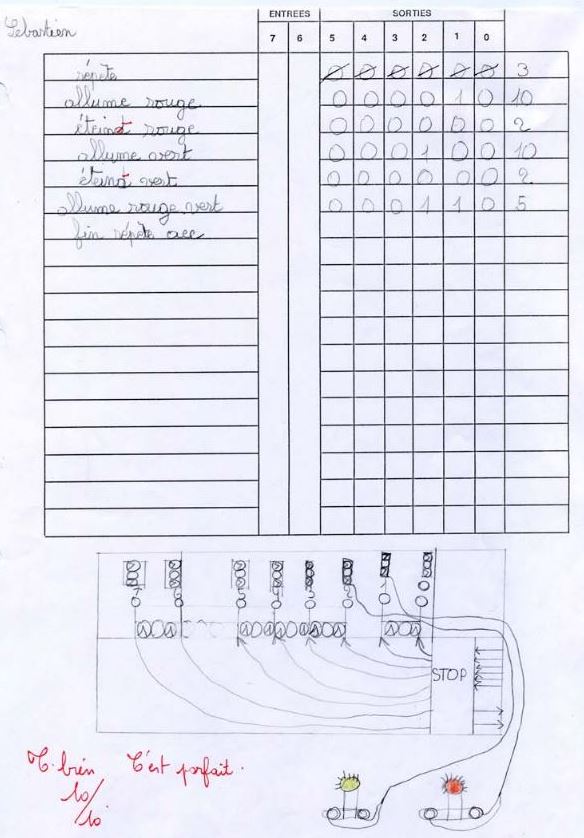 Sébastien
ENTREES SORTIES
7 6 5 4 3 2 1 0
répète 0 0 0 0 0 0 3
allume rouge 0 0 0 0 1 0 10
éteint rouge 0 0 0 0 0 0 2
allume vert 0 0 0 1 0 0 10
éteint vert 0 0 0 0 0 0 2
allume rouge vert 0 0 0 1 1 0 5
fin répète
7 6 5 4 3 2 1 0
STOP
T. bien C'est parfait.
10/10